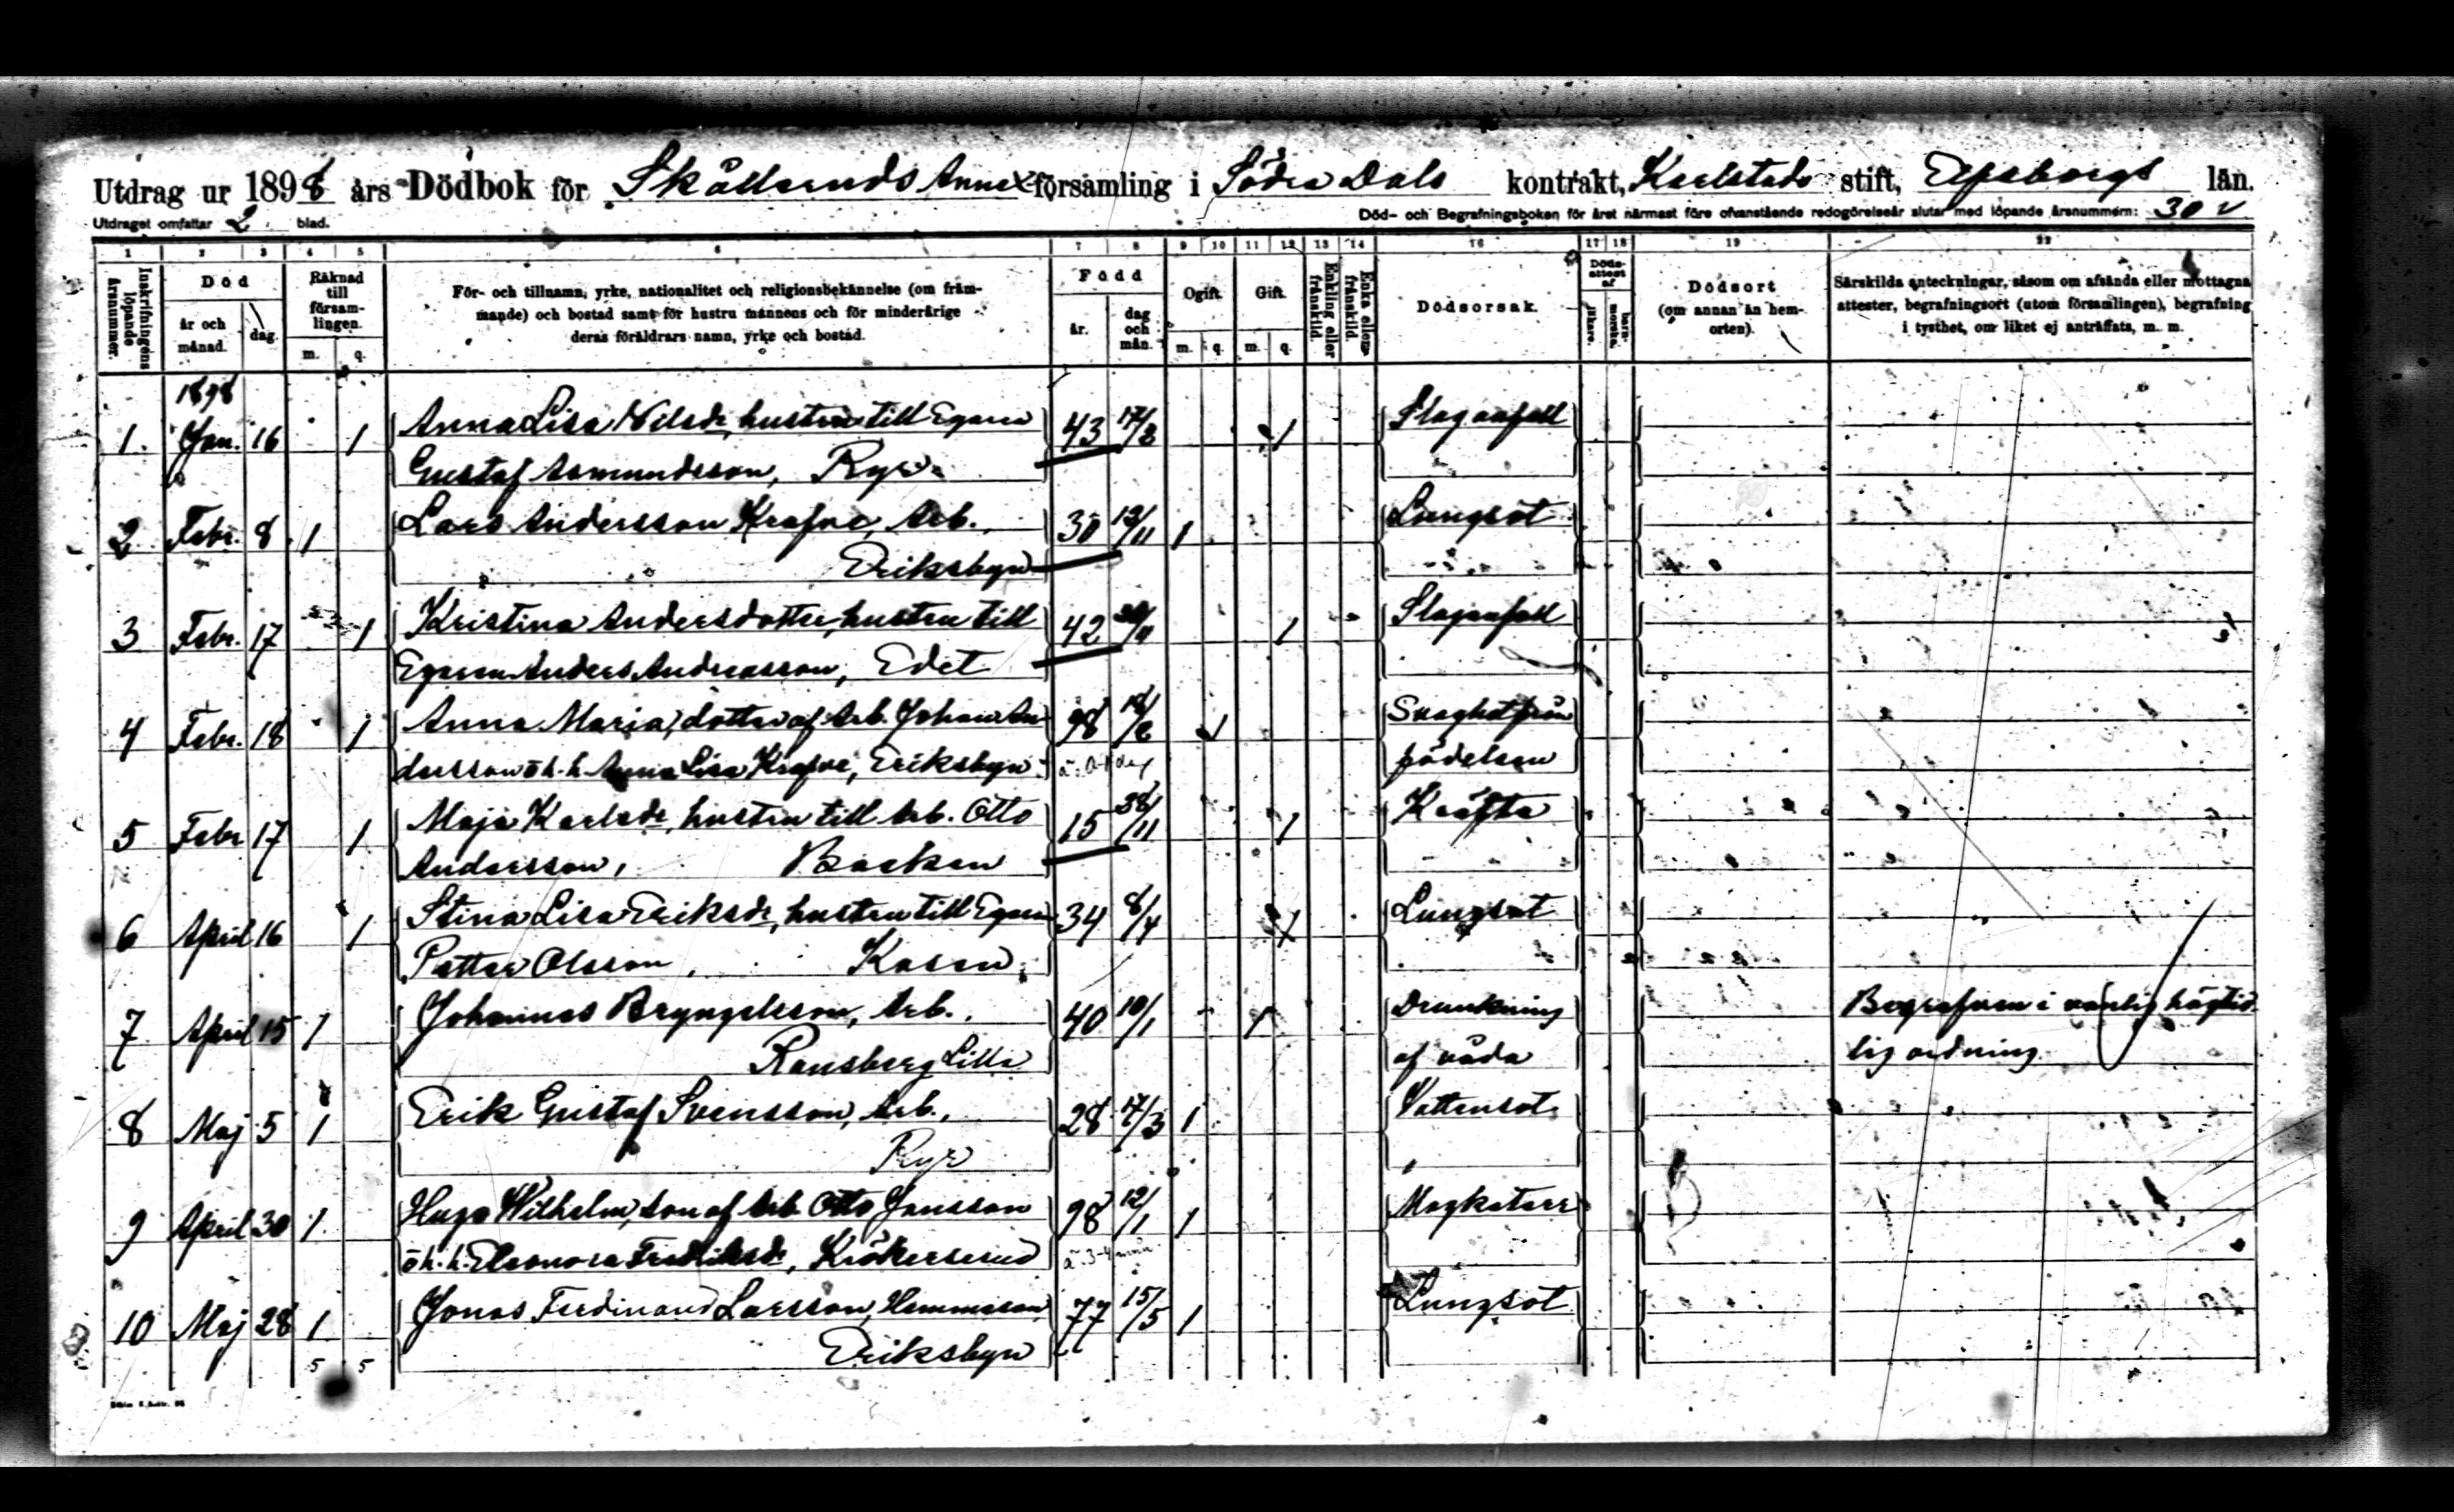 Utdrag ur 1898 års Dödbok för Skålleruds Annex-församling i Södra Dals kontrakt, Karlstads stift, Elfsborgs län.
Utdraget omfattar 2 blad.
Död- och Begrafningsboken för året närmast före ofvanstående redogörelseår slutar med löpande årsnummern: 30
1 2 3 4 5 6 7 8 9 10 11 12 13 14 16 17 18 19
Inskrifningens löpande årsnummer.
Död
år och månad.
dag.
Räknad till församlingen.
m. q.
För- och tillnamn, yrke, nationalitet och religionsbekännelse (om främ-
mande) och bostad samt för hustru mannens och för minderårige
deras föräldrars namn, yrke och bostad.
Född
år.
dag och mån.
Ogift.
m. q.
Gift.
m. q.
Enkling eller frånskild.
Enka eller frånskild.
Dödsorsak.
Döds-attest af
läkare.
barnmorska.
Dödsort
(om annan än hem-
orten).
Särskilda anteckningar, såsom om afsända eller mottagna
attester, begrafningsort (utom församlingen), begrafning
i tysthet, om liket ej anträffats, m. m.
1898
1. Jan. 16 1 Anna Lisa Nilsdr, hustru till Egaren 43 17/2 1 Slaganfall
Gustaf Asmundsson, Ryr.
2 Febr. 8 1 Lars Andersson Krafve, Arb. 30 13/11 1 Lungsot
Eriksbyn
3 Febr. 17 1 Kristina Andersdotter, hustru till 42 1 Slaganfall
Egaren Anders Andreasson, Edet
4 Febr. 18 1 Anna Maria, dotter af Arb. Johan An- 98 18/2 1 Svaghet från
dersson o h. h. Anna Lisa Krafve, Eriksbyn födelsen
5 Febr 17 1 Maja Karlsdr, hustru till Arb. Otto 15 28/11 1 Kräfta
Andersson, Backen
6 April 16 1 Stina Lisa Eriksdr, hustru till Egaren 34 8/4 1 Lungsot
Petter Olsson, Kasen
7 April 15 1 Johannes Bryngelsson, Arb. 40 10/1 1 Drunkning Begrafven i vanlig högtid-
Ransberg Lilla af våda lig ordning.
8 Maj 5 1 Erik Gustaf Svensson, Arb., 28 17/3 1 Vattensot
Ryr
9 April 30 1. Hugo Wilhelm, son af Arb. Otto Jansson 98 12/1 1 Magkatarr
o h. h. Eleonora Fredriksdr, Krökersrud
10 Maj 28 1 Jonas Ferdinand Larsson, Hemmason 77 15/5 1 Lungsot
Eriksbyn
5 5